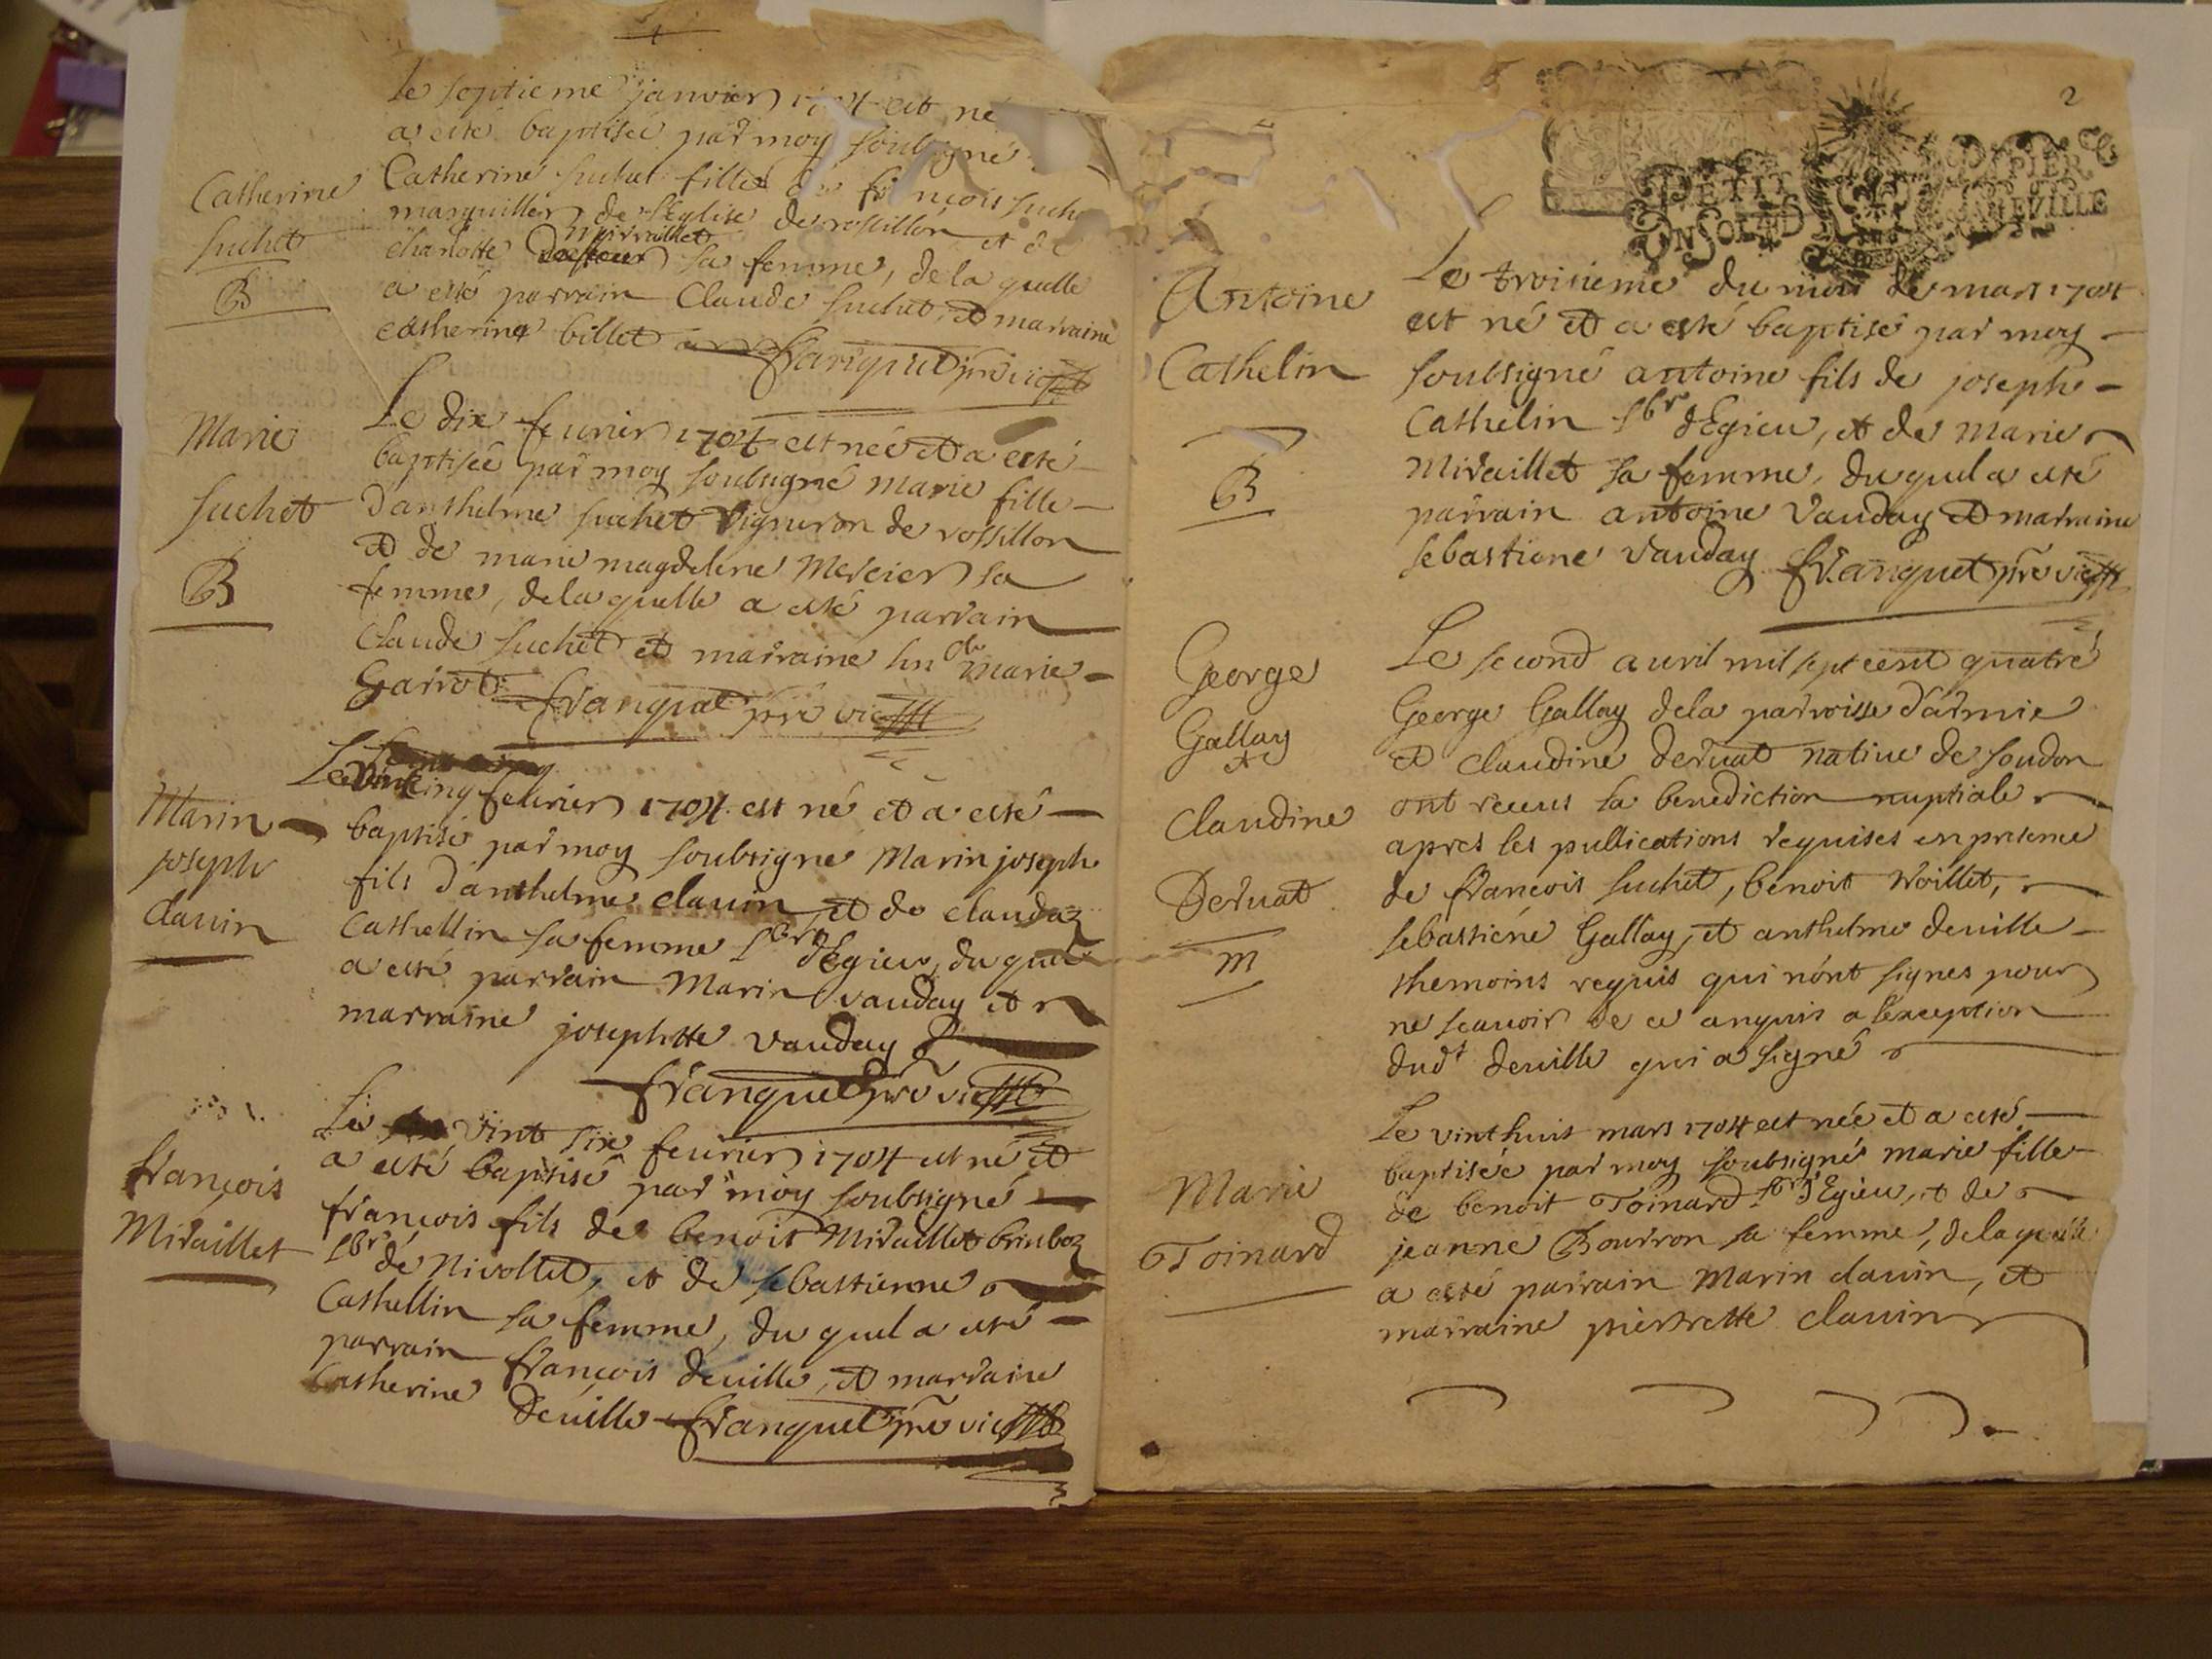 Le septieme janvier 1704 est né
a esté baptisée par moy soubsigné
Catherine suchet fille de françois suche
marguillier de l'Eglise de rossillon et de
Mirraillet
charlotte sa femme, de la quelle
a esté parrain Claude suchet, et marraine
catherine billet
franquet pre vic
Catherine
suchet
B
Le dix feurier 1704 est née et a esté
baptisée par moy soubsigné marie fille
d'anthelme suchet Vigneron de rossillon
et de marie magdeleine Mercier sa
femme, de la quelle a esté parrain
Claude suchet et marraine hnde marie
Garrot franquet pre vic
Marie
suchet
B
Le Vintcinq feurier 1704 est né et a esté
baptisé par moy soubsigné Marin joseph
fils d'anthelme clauin et de claudaz
Cathellin sa femme lbrs d'Egieu, du quel
a esté parrain Marin vauday et
marraine josephtte vauday
franquet pre vic
Marin
joseph
clauin
Le vint six feurier 1704 est né et
a esté baptisé par moy soubsigné
françois fils de benoit Miraillet brinboz
lbr de Nivollet, et de sebastienne
Cathellin sa femme, du quel a esté
parrain françois deuille, et marraine
Catherine deuille franquet pre vic
françois
Miraillet
2
PETIT PAPIER
Antoine
Cathelin
B
Le troisieme du mois de mars 1704
est né et a esté baptisé par moy
soubsigné antoine fils de joseph
Cathelin lbr d'Egieu, et de Marie
Miraillet sa femme, du quel a esté
parrain antoine Vauday et marraine
sebastiene vauday franquet pre vic
George
Gallay
et
Claudine
Deruat
m
Le second auril mil sept cent quatre
George Gallay de la parroisse d'armix
et Claudine deruat natiue de soudon
ont receus la benediction nuptiale
apres les pullications requises en presence
de françois suchet, benoit Woillet,
sebastiéne Gallay, et anthelme deuille
themoins requis qui n'ont signes pour
ne scauoir de ce anquis a lexception
dudt deuille qui a signé
Marie
Toinard
Le vinthuit mars 1704 est née et a esté
baptisée par moy soubsigné marie fille
de benoit Toinard lbr d'Egieu, et de
jeanne Bourron sa femme, de la quelle
a esté parrain Marin clauin, et
marraine pierrette clauin